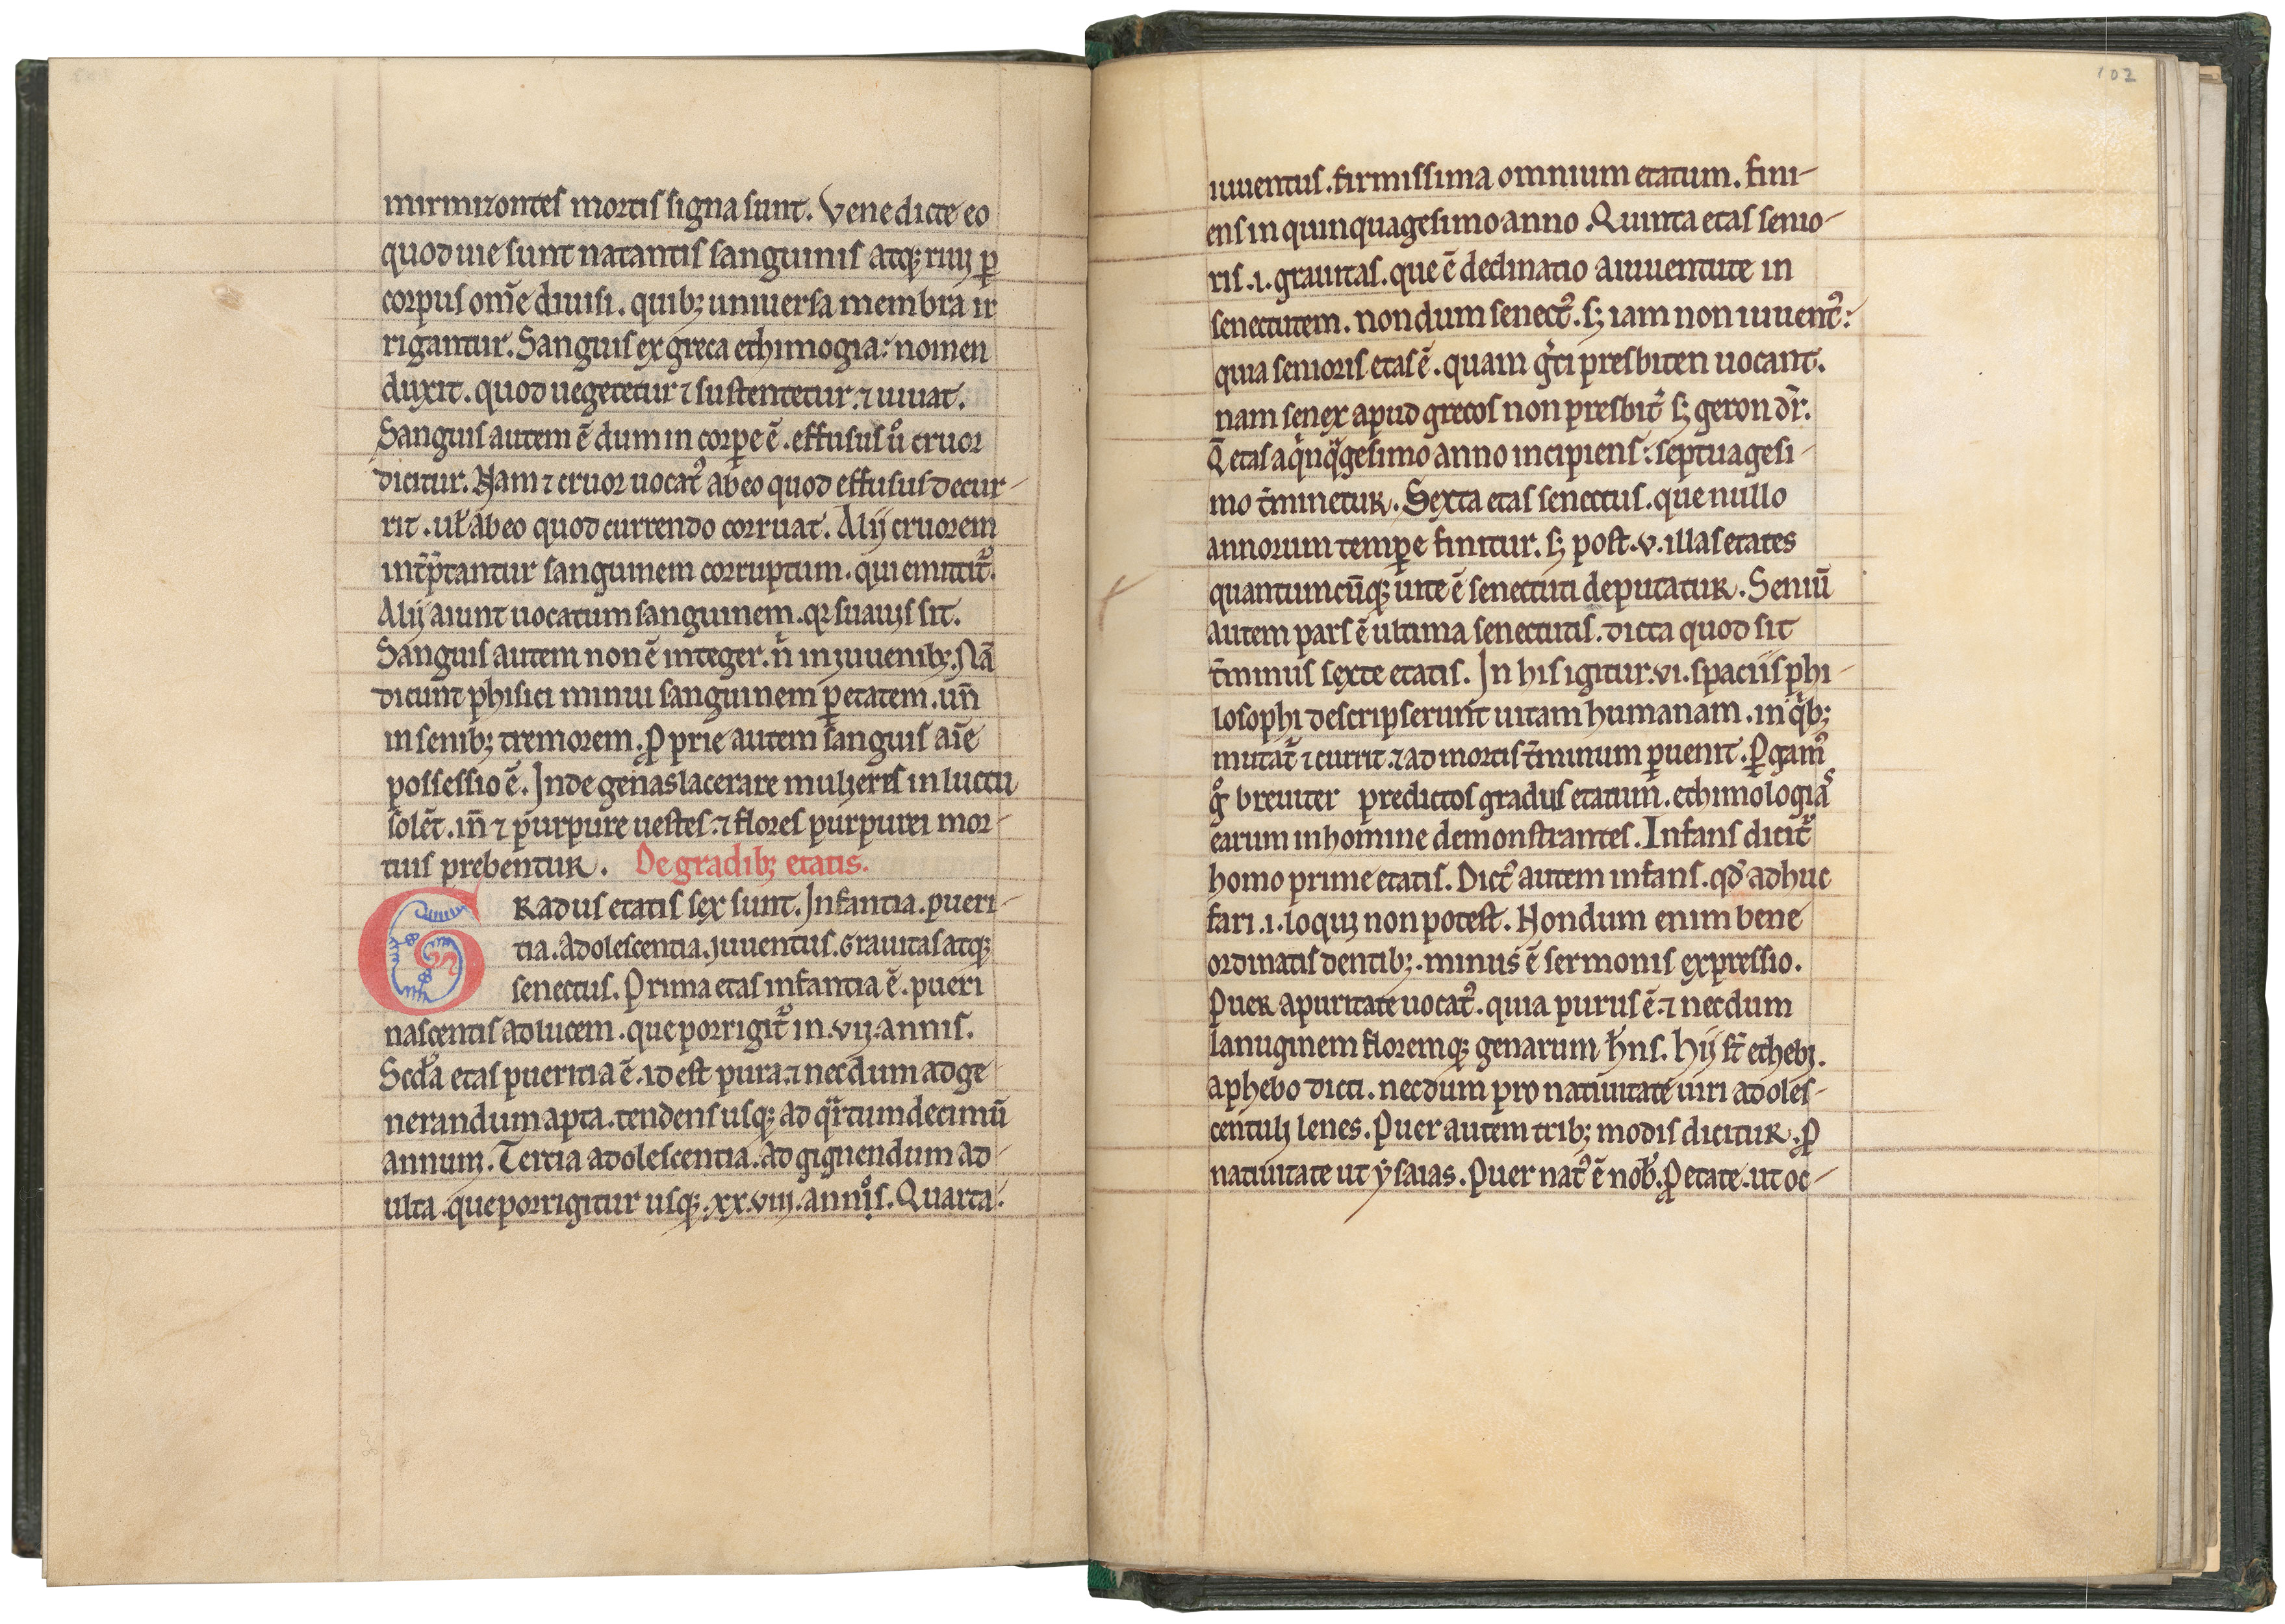 mirmizontes mortis signa sunt. Vene dicte eo
quod uie sunt natantis sanguinis atq; riuj ꝑ
corpus om̅e diuisi. quib; uniuersa membra ir
rigantur. Sanguis ex greca ethimogia: nomen
duxit. quod uegetetur ⁊ sustentetur. ⁊ uiuat.
Sanguis autem ē dum in corꝑe ē. effusus ů cruor
dicitur. Nam ⁊ cruor uocat᷒ ab eo quod effusus decur-
rit. ul̕ ab eo quod currendo corruat. Alij cruorem
int̅p̅tantur sanguinem corruptum. qui emittit᷒.
Alij aiunt uocatum sanguinem. qꝛ suauis sit.
Sanguis autem non ē integer. n̍ in juuenib;. Nā
dicunt phisici minui sanguinem ꝑ etatem. un̅
in senib; tremorem. ꝓprie autem sanguis aīe
possessio ē. Inde genas lacerare mulieres in luctu
solēt. in̅ ⁊ purpure uestes. ⁊ flores purpurei mor-
tuis prebentur. De gradib; etatis.
GRadus etatis sex sunt. Infantia. pueri-
tia. Adolescentia. juuentus. Grauitas atq;
senectus. Prima etas infantia ē. pueri
nascentis ad lucem. que porrigit᷒ in .vij. annis.
Scd̅a etas pueritia ē. id est pura. ⁊ necdum ad ge-
nerandum apta. tendens usq; ad qᷓrtum decimū
annum. Tertia adolescentia. ad gignendum ad-
ulta. que porrigitur usq;. xx.viij. annos. Quarta.
102
iuuentus. firmissima omnium etatum. fini-
ens in quinquagesimo anno. Quinta etas senio-
ris .i. grauitas. que ē declinatio a iuuentute in
senectutem. nondum senect᷒. s; iam non iuuent᷒:
quia senioris etas ē. quam g̍ci presbiten uocant.
nam senex apud grecos non presbit᷒ s; geron dr̅.
Q̅ etas a qͥnqᷓgesimo anno incipiens: septuagesi-
mo t̅minetur. Sexta etas senectus. que nullo
annorum temꝑe finitur. s; post .v. illas etates
quantumcūq; uite ē senectuti deputatur. Seniū
autem pars ē ultima senectutis. dicta quod sit
t̅minus sexte etatis. In his igitur .vi. spaciis phi-
losophi descripserunt uitam humanam. in qͥb;
mutat᷒ ⁊ currit. ⁊ ad mortis t̅minum ꝑuenit. ꝑgam᷒
g̊ breuiter predictos gradus etatum. ethimologiā
earum in homine demonstrantes. Infans dicit᷒
homo prime etatis. Dict᷒ autem infans. qd̕ adhuc
fari .i. loqui non potest. Nondum enim bene
ordinatis dentib;. minus ē sermonis expressio.
Puer a puritate uocat᷒. quia purus ē. ⁊ necdum
lanuginem floremq; genarum h̅ns. Hij st̅ ethebi.
a phebo dicti. necdum pro natiuitate uiri adoles-
centulj lenes. Puer autem trib; modis dicitur. ꝓ
natiuitate ut ẏsaias. Puer nat᷒ ē nob̕. ꝓ etate. ut oc-